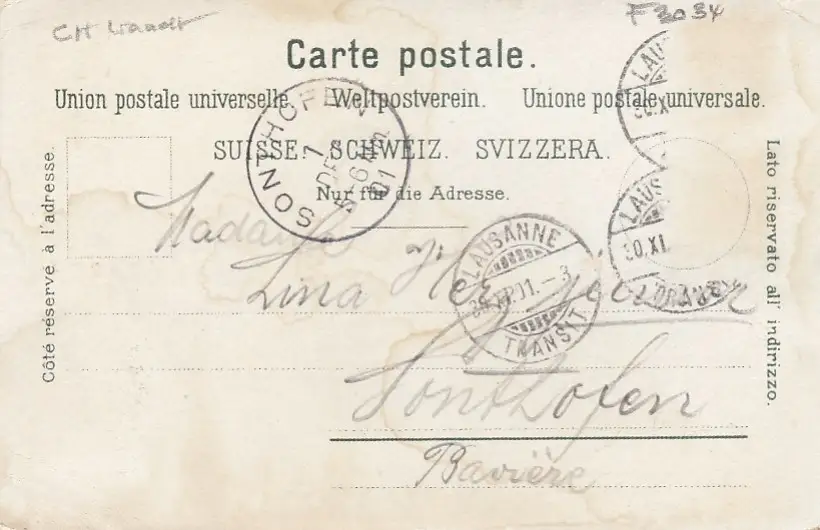 F3034
Carte postale.
Union postale universelle. Weltpostverein. Unione postale universale.
SUISSE. SCHWEIZ. SVIZZERA.
Nur für die Adresse.
Côté réservé à l'adresse.
Lato riservato all' indirizzo.
SONTHOFEN
1
DEZ
01
LAUSANNE
TRANSIT
LAUS
30.XI
LAUS
30.XI
Madame
Lina
Sonthofen
Bavière